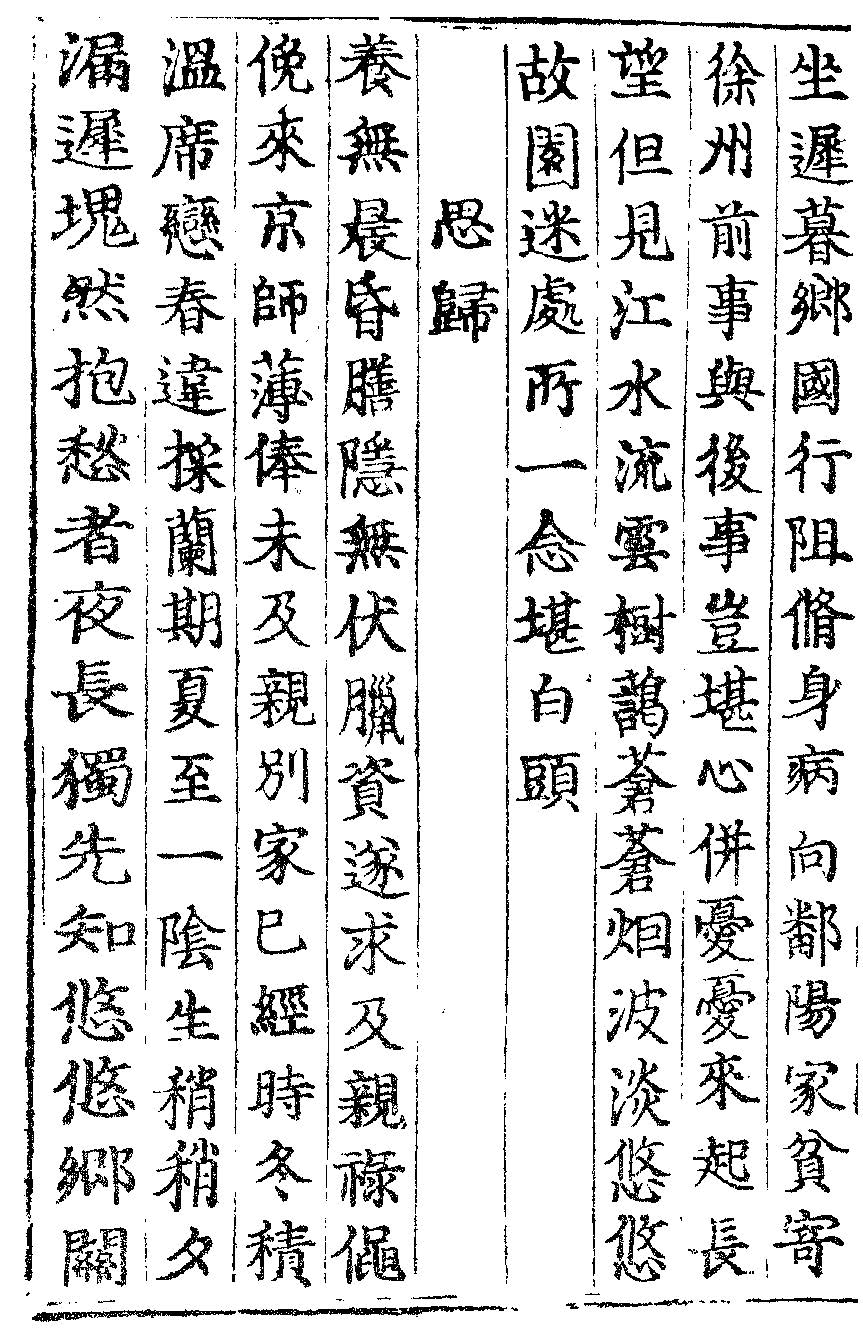 坐遲暮鄉國行阻脩身病向鄱陽家貧寄
徐州前事與後事豈堪心併憂憂來起長
望但見江水流雲樹藹蒼蒼烟波淡悠悠
故園迷處所一念堪白頭
思歸
養無晨昏膳隱無伏臘資遂求及親祿僶
俛來京師薄俸未及親別家已經時冬積
溫席戀春違採蘭期夏至一陰生稍稍夕
漏遲塊然抱愁者夜長獨先知悠悠鄉關